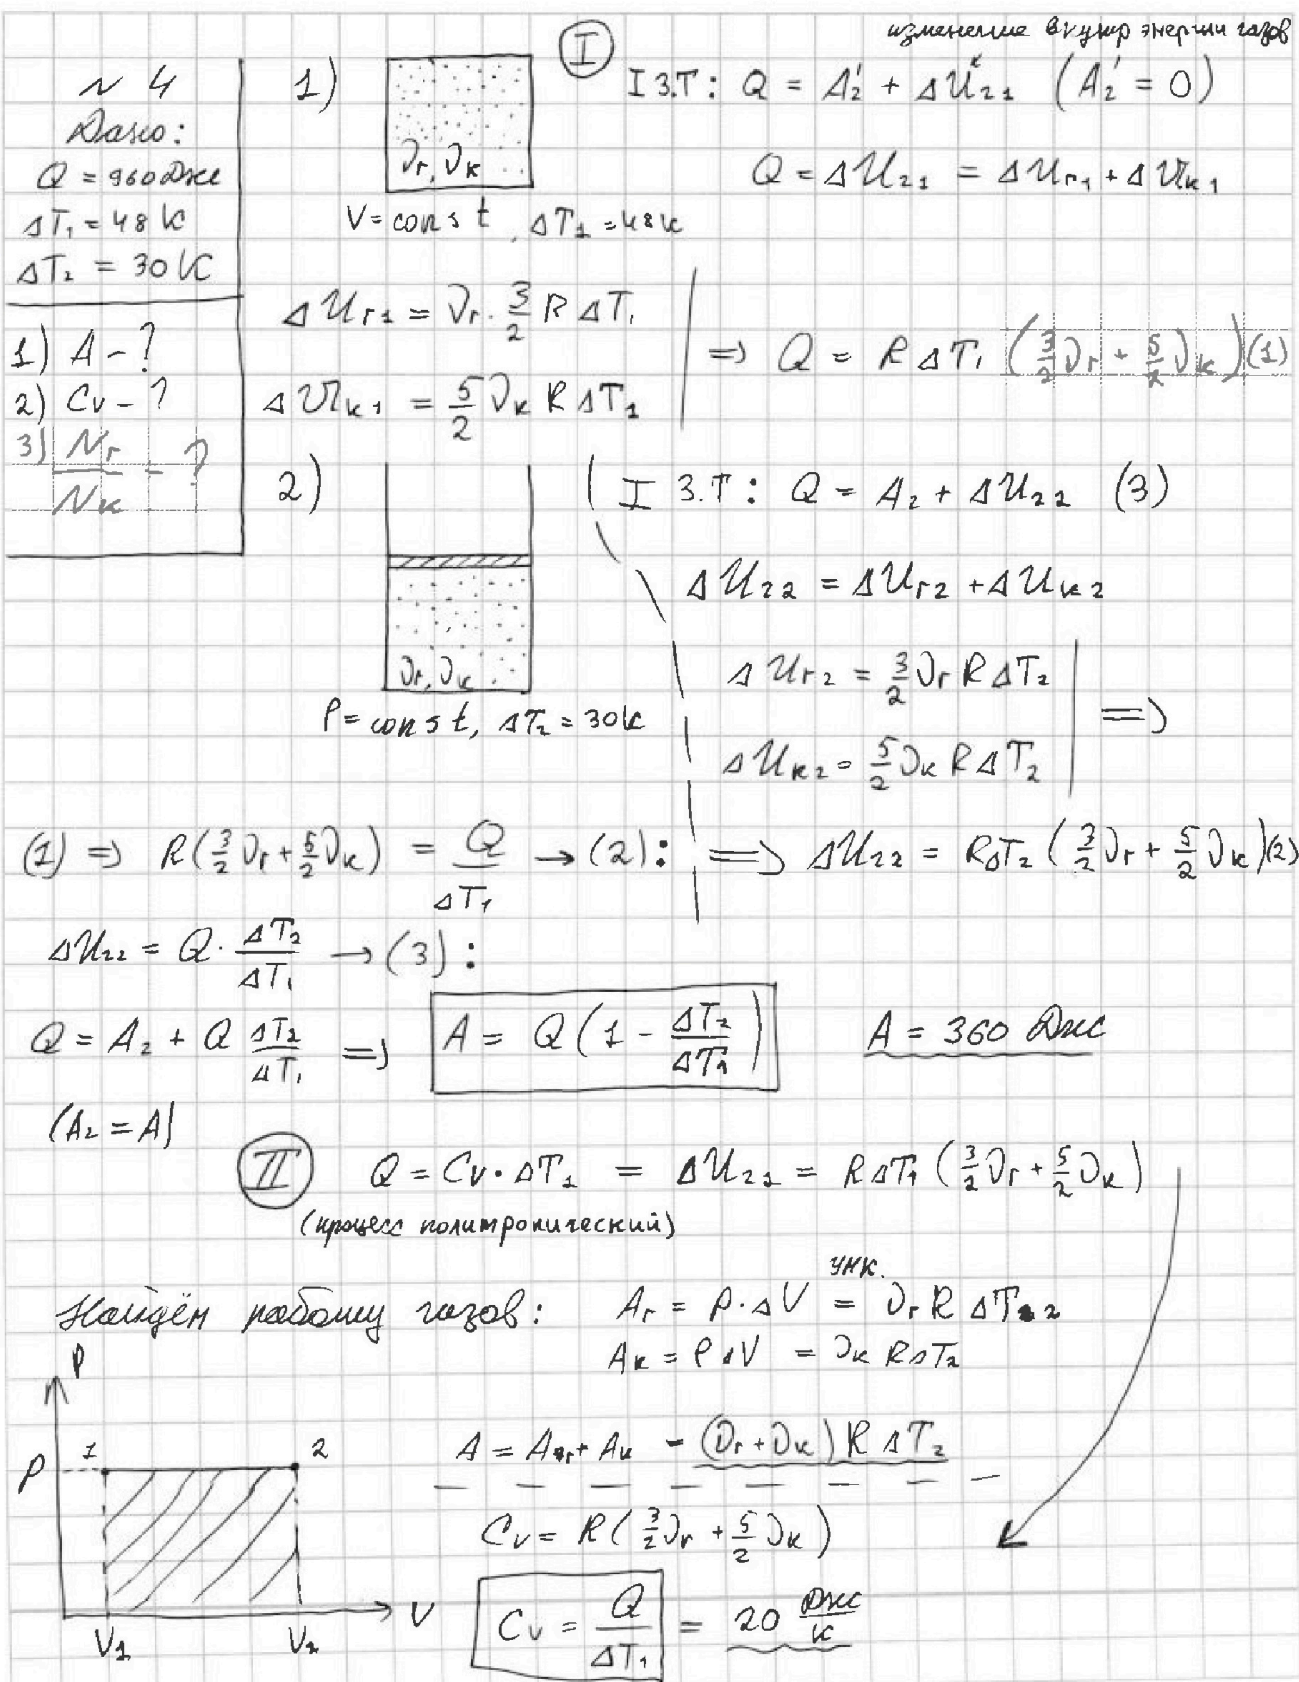 изменение внутр энергии газов
N 4
Дано:
Q = 960 Дж
ΔT₁ = 48 K
ΔT₂ = 30 K
1) A - ?
2) Cv - ?
3) Nг/Nк - ?
1)
νг, νк
V = const, ΔT₁ = 48 K
I
I З.Т: Q = A₂' + ΔU₂₁ (A₂' = 0)
Q = ΔU₂₁ = ΔUг₁ + ΔUк₁
ΔUг₁ = νг · 3/2 R ΔT₁
ΔUк₁ = 5/2 νк R ΔT₁
=> Q = R ΔT₁ (3/2 νг + 5/2 νк) (1)
2)
νг, νк
P = const, ΔT₂ = 30 K
I З.Т: Q = A₂ + ΔU₂₂ (3)
ΔU₂₂ = ΔUг₂ + ΔUк₂
ΔUг₂ = 3/2 νг R ΔT₂
ΔUк₂ = 5/2 νк R ΔT₂
=>
=> ΔU₂₂ = RΔT₂ (3/2 νг + 5/2 νк) (2)
(1) => R(3/2 νг + 5/2 νк) = Q/ΔT₁ → (2):
ΔU₂₂ = Q · ΔT₂/ΔT₁ → (3):
Q = A₂ + Q ΔT₂/ΔT₁ => A = Q(1 - ΔT₂/ΔT₁) A = 360 Дж
(A₂ = A)
II Q = Cv · ΔT₁ = ΔU₂₁ = RΔT₁ (3/2 νг + 5/2 νк)
(процесс политропический)
Найдём работу газов: Aг = P · ΔV = νг R ΔT₂
умк.
Aк = P ΔV = νк RΔT₂
A = Aг + Aк = (νг + νк) R ΔT₂
Cv = R(3/2 νг + 5/2 νк)
Cv = Q/ΔT₁ = 20 Дж/K
P
P
1
2
V₁
V₂
V